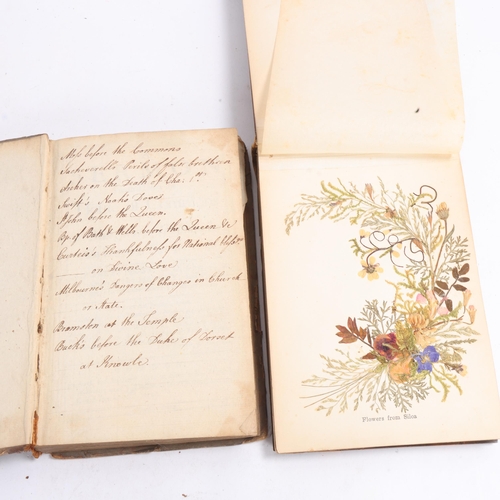 Mosse before the Commons
Sacheverells Perils of false brethren
Archer on the Death of Cha: 1st.
Swift's Noahs Dove
Atpho before the Queen.
Bp. of Bath & Wells before the Queen &c
Curtise's Thankfulness for National
on Divine Love
Melbourne's Dangers of Changes in Church
or State.
Bramston at the Temple
Bucks before the Duke of Dorset
at Knowle
Flowers from Siloa.